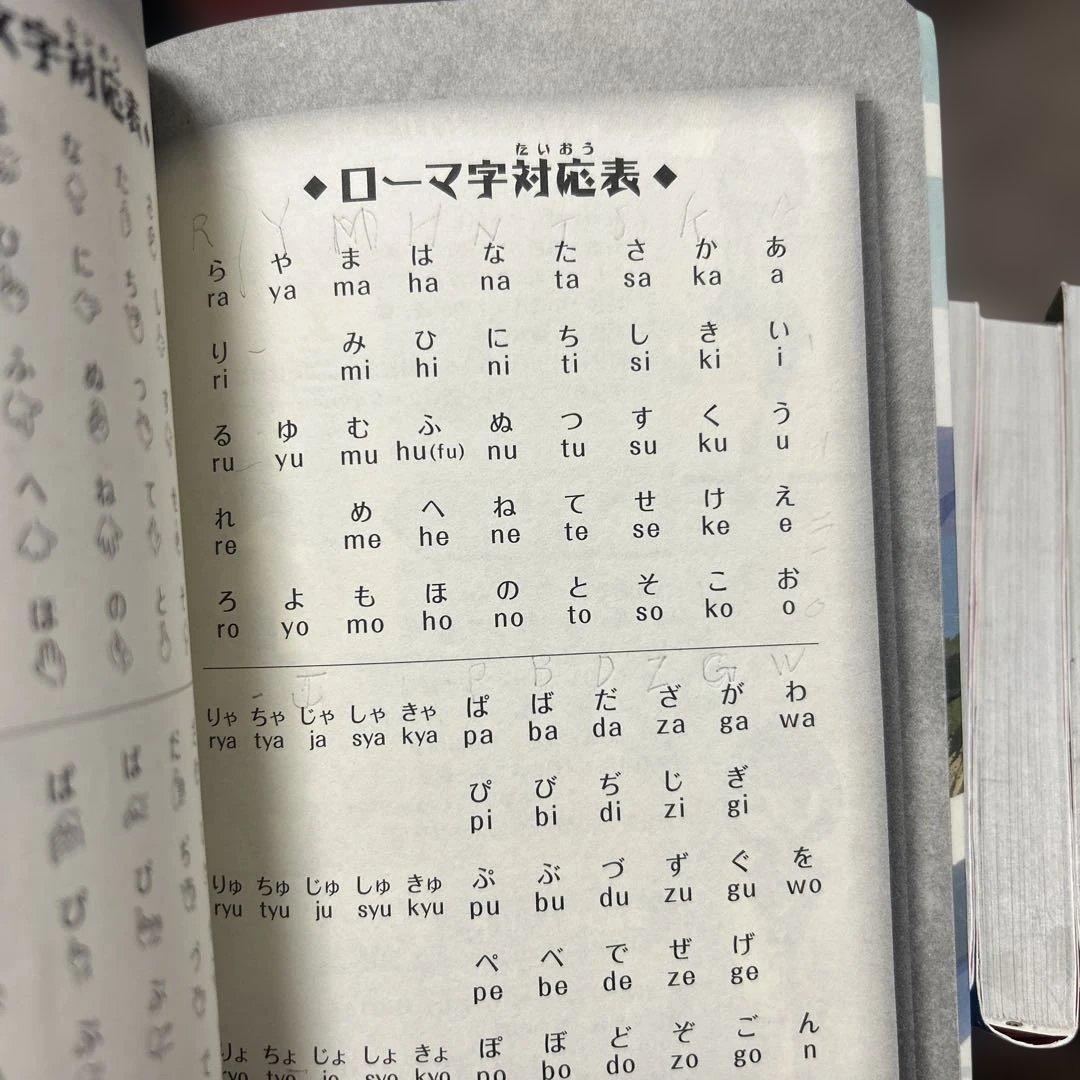 たいおう
◆ローマ字対応表◆
R Y M H N T S K A
ら や ま は な た さ か あ
ra ya ma ha na ta sa ka a
り み ひ に ち し き い
ri mi hi ni ti si ki i
る ゆ む ふ ぬ つ す く う
ru yu mu hu(fu) nu tu su ku u
れ め へ ね て せ け え
re me he ne te se ke e
ろ よ も ほ の と そ こ お
ro yo mo ho no to so ko o
J P B D Z G W
りゃ ちゃ じゃ しゃ きゃ ぱ ば だ ざ が わ
rya tya ja sya kya pa ba da za ga wa
ぴ び ぢ じ ぎ
pi bi di zi gi
りゅ ちゅ じゅ しゅ きゅ ぷ ぶ づ ず ぐ を
ryu tyu ju syu kyu pu bu du zu gu wo
ぺ べ で ぜ げ
pe be de ze ge
りょ ちょ じょ しょ きょ ぽ ぼ ど ぞ ご ん
ryo tyo jo syo kyo po bo do zo go n
字対応表◆
な た
に ち
ふ ぬ つ
へ ね て
ほ の と
ぱ ば だ
ぴ び ぢ